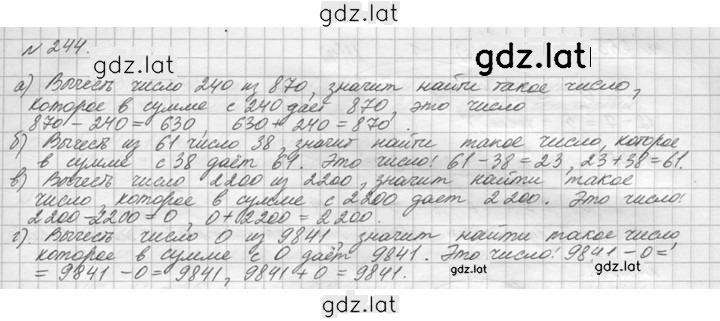 gdz.lat
№ 244.
gdz.lat
gdz.lat
а) Вычесть число 240 из 870, значит найти такое число,
которое в сумме с 240 даёт 870, это число
870 - 240 = 630, 630 + 240 = 870
б) Вычесть из 61 число 38, значит найти такое число, которое
в сумме с 38 даёт 61. Это число: 61 - 38 = 23, 23 + 38 = 61.
в) Вычесть число 2200 из 2200, значит найти такое
число, которое в сумме с 2200 дает 2200. Это число:
2200 - 2200 = 0, 0 + 2200 = 2200.
г) Вычесть число 0 из 9841, значит найти такое число,
которое в сумме с 0 даёт 9841. Это число: 9841 - 0 =
= 9841 - 0 = 9841, 9841 + 0 = 9841.
gdz.lat
gdz.lat
gdz.lat